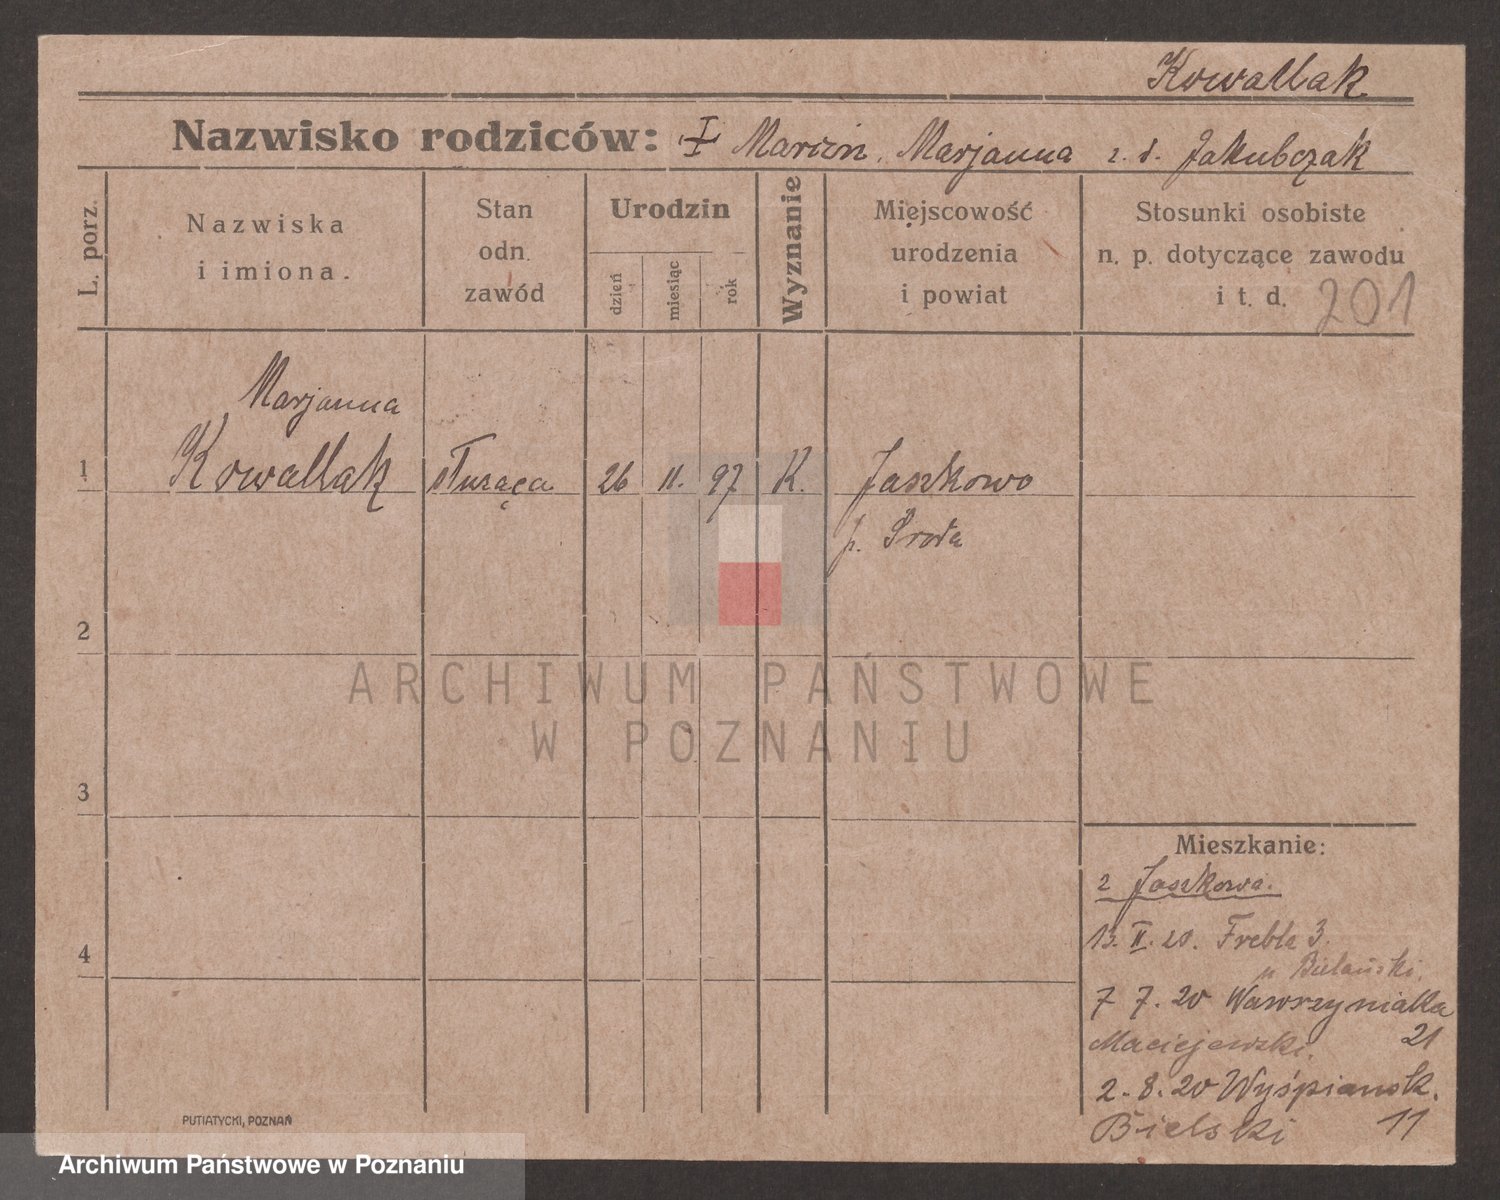 Kowallak
Nazwisko rodziców: I Marcin, Marjanna z. d. Jakubczak
L. porz.
Nazwiska
i imiona.
Stan
odn.
zawód
Urodzin
dzień
miesiąc
rok
Wyznanie
Miejscowość
urodzenia
i powiat
Stosunki osobiste
n. p. dotyczące zawodu
i t. d. 201
Marjanna
1 Kowallak służąca 26 11. 97 K. Jaszkowo
p. Środa
2
3
4
ARCHIWUM PAŃSTWOWE
W POZNANIU
Mieszkanie:
z Jaszkowa.
13. II. 20. Frebla 3.
u Bielański.
7 7. 20 Wawrzyniaka
Maciejewski. 21
2. 8. 20 Wyśpiansk.
Bielski 11
PUTIATYCKI, POZNAŃ
Archiwum Państwowe w Poznaniu